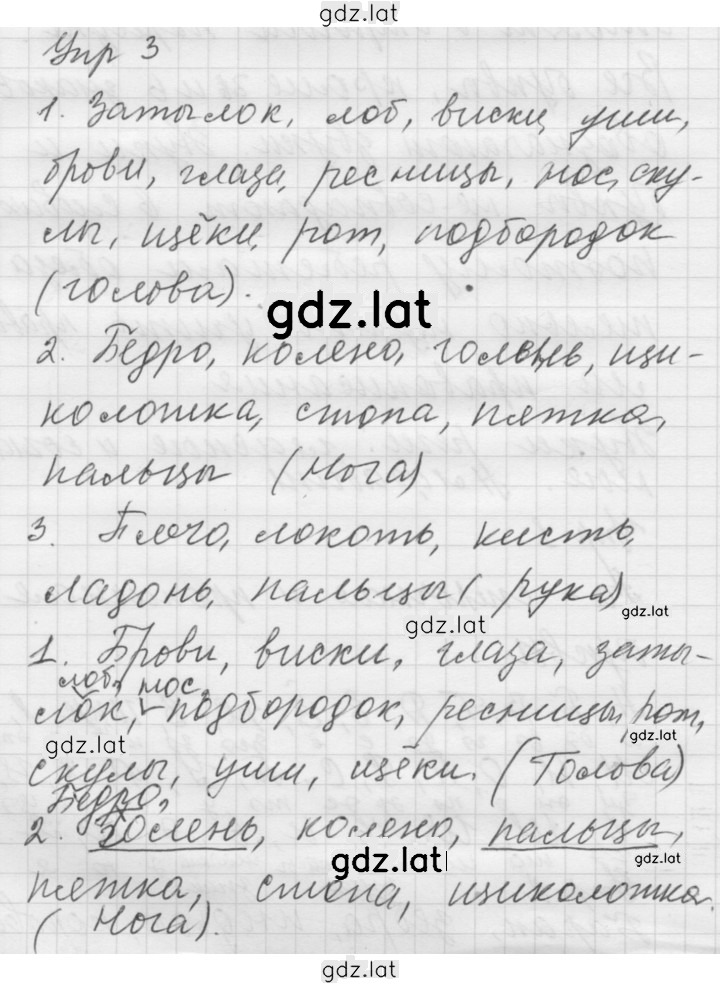 gdz.lat
Упр 3
1. Затылок, лоб, виски, уши,
брови, глаза, ресницы, нос, ску-
лы, щёки, рот, подбородок
(голова).
gdz.lat
2. Бедро, колено, голень, щи-
колотка, стопа, пятка,
пальцы (Нога)
3. Плечо, локоть, кисть,
ладонь, пальцы (рука)
gdz.lat
gdz.lat
1. Брови, виски, глаза, заты-
лоб, нос,
лок, подбородок, ресницы, рот,
gdz.lat
gdz.lat
скулы, уши, щёки. (Голова)
Бедро,
2. Голень, колено, пальцы,
gdz.lat
gdz.lat
пятка, стопа, щиколотка.
(Нога).
gdz.lat